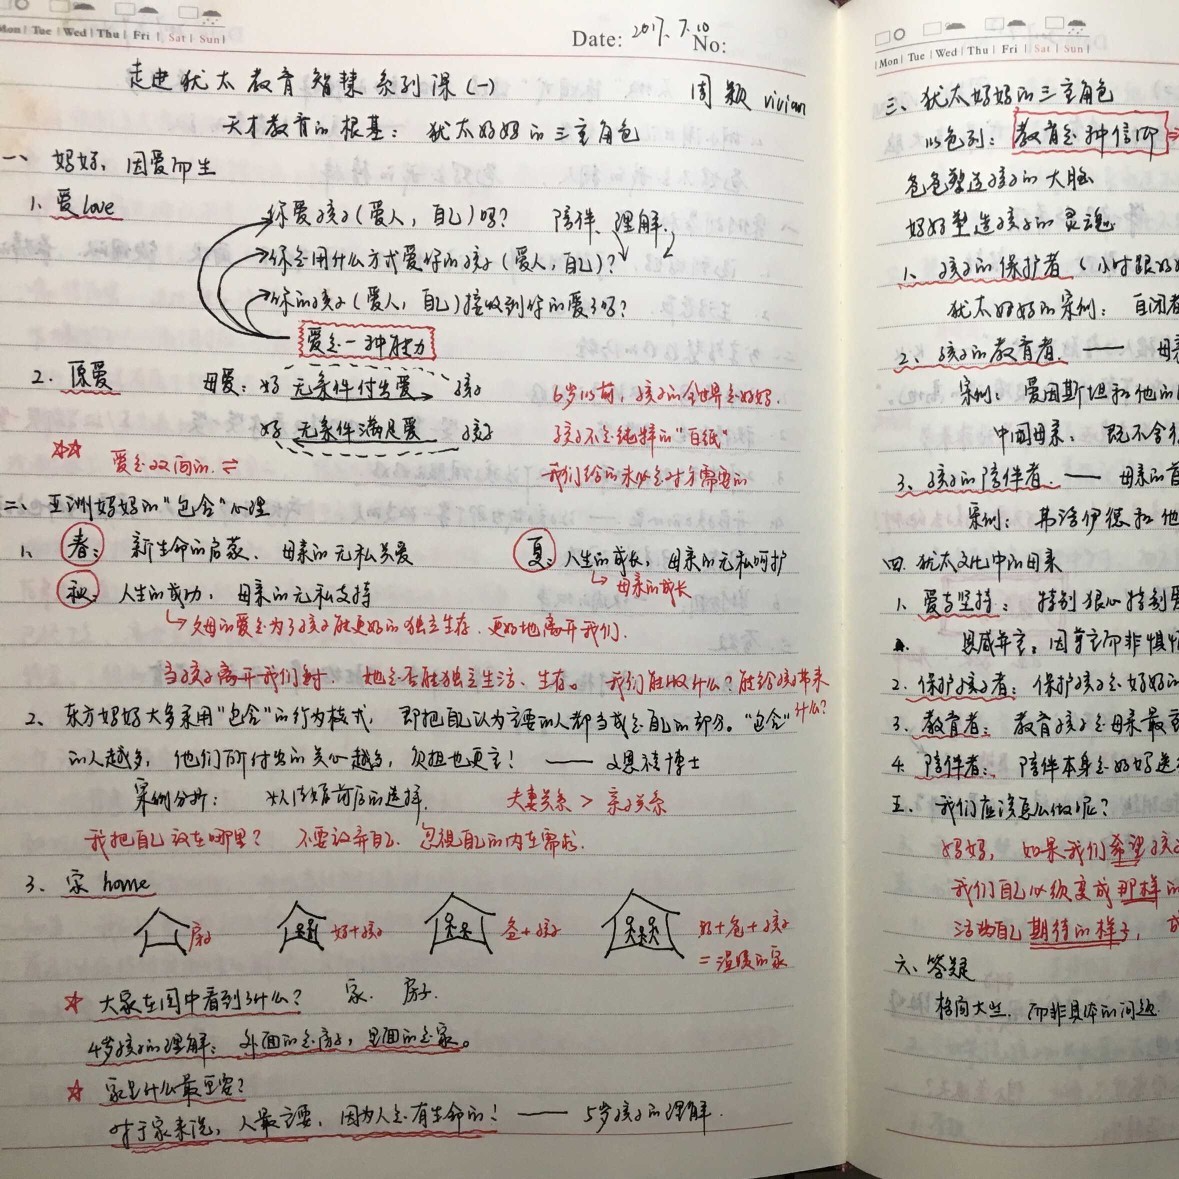 Mon | Tue | Wed | Thu | Fri | Sat | Sun |
Date: 2017.7.10 No:
走进犹太教育智慧系列课(一) 周颖 vivian
天才教育的根基: 犹太妈妈的三重角色
一、妈妈,因爱而生
1、爱 love
你爱孩子(爱人,自己)吗? 陪伴、理解、
你会用什么方式爱你的孩子(爱人,自己)?
你的孩子(爱人,自己)接收到你的爱了吗?
爱是一种能力
2、原爱 母爱: 妈 无条件付出爱 孩子
6岁以前,孩子的全世界是妈妈.
妈 无条件满足爱 孩子
孩子不是纯粹的"白纸"
爱是双向的. ⇌
我们给的未必是对方需要的
二、亚洲妈妈的"包含"心理
1、春: 新生命的启蒙、母亲的无私关爱
夏: 人生的成长,母亲的无私呵护
母亲的成长
秋: 人生的成功,母亲的无私支持
父母的爱是为了孩子能更好的独立生存、更好地离开我们.
当孩子离开我们时, 他是否能独立生活、生存。 我们能做什么?能给孩子带来什么?
2、东方妈妈大多采用"包含"的行为模式, 即把自己认为重要的人都当成是自己的部分。"包含"
的人越多,他们所付出的关心越多,负担也更重! ——
案例分析: 婚前后的选择. 夫妻关系 > 亲子关系
我把自己放在哪里? 不要放弃自己、忽视自己的内在需求.
3、家 home
房子
妈+孩子
爸+孩子
妈+爸+孩子
=温暖的家
☆ 大家在图中看到了什么? 家. 房子.
4岁孩子的理解: 外面的是房子,里面的是家。
☆ 家里什么最重要?
对于家来说,人最重要,因为人是有生命的! —— 5岁孩子的理解.
| Mon | Tue | Wed | Thu | Fri | Sat | Sun |
三、犹太妈妈的三重角色
以色列: 教育是种信仰
爸爸塑造孩子的大脑
妈妈塑造孩子的灵魂
1、孩子的保护者 (小时跟妈
犹太妈妈的案例: 自闭者
2、孩子的教育者. —— 母亲
案例: 爱因斯坦和他的
中国母亲: 既不会
3、孩子的陪伴者. —— 母亲的
案例: 弗洛伊德和他
四、犹太文化中的母亲
1、爱与坚持: 特别狠心特别
恩威并重,因尊重而非惧怕
2、保护孩子者: 保护孩子是妈妈的
3、教育者: 教育孩子是母亲最
4、陪伴者: 陪伴本身是妈妈送
五、我们应该怎么做呢?
妈妈, 如果我们希望孩子
我们自己必须变成那样的
活出自己期待的样子,
六、答疑
格局大些,而非具体的问题.